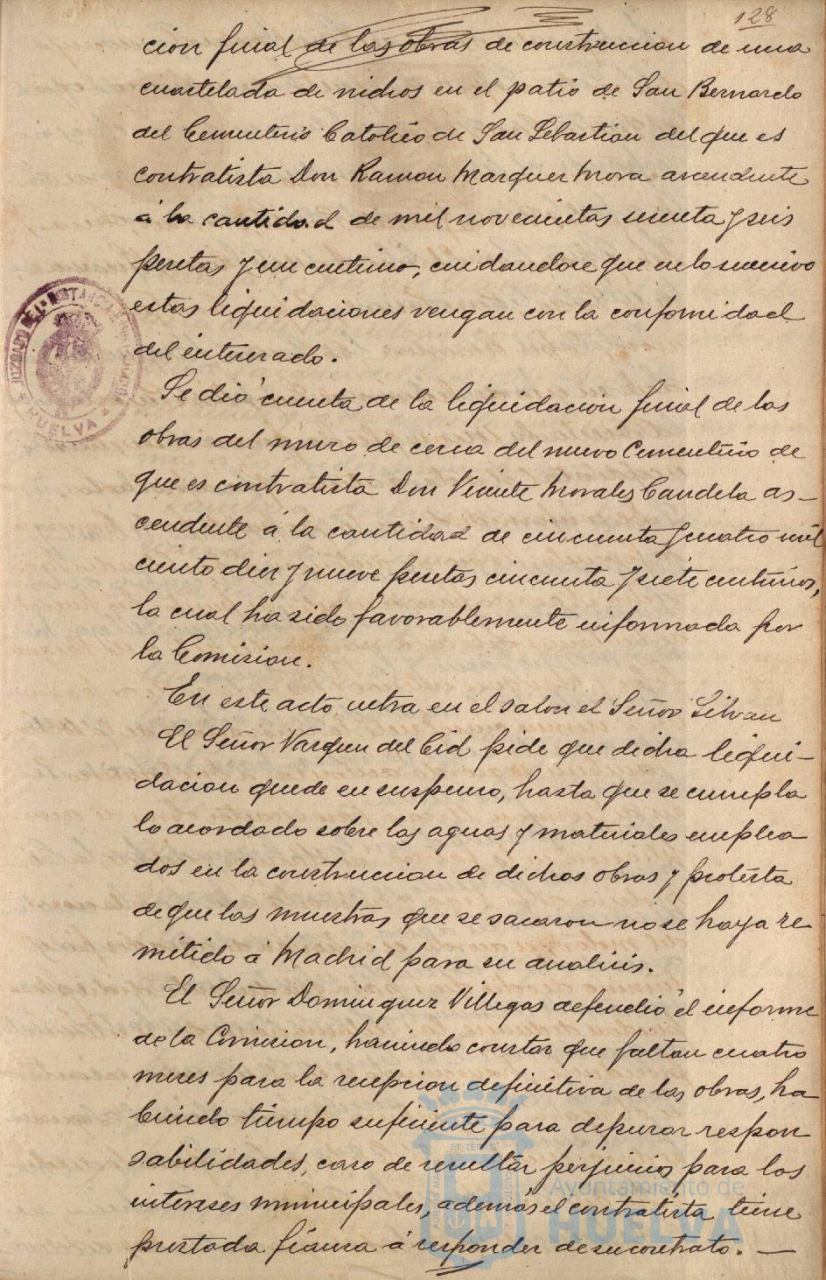 128
cion final de las obras de construccion de una
cuartelada de nichos en el patio de San Bernardo
del Cementerio Catolico de San Sebastian del que es
contratista Don Ramon Marquez Mora ascendente
á la cantidad de mil novecientas sesenta y seis
pesetas y un centimo, cuidandose que en lo sucesivo
estas liquidaciones vengan con la conformidad
del interesado.
Se dió cuenta de la liquidacion final de las
obras del muro de cerca del nuevo Cementerio de
que es contratista Don Vicente Morales Candela as-
cendente á la cantidad de cincuenta y cuatro mil
ciento diez y nueve pesetas cincuenta y siete centimos,
la cual ha sido favorablemente informada por
la Comision.
En este acto entra en el salon el Señor
El Señor Vazquez del Cid pide que dicha liqui-
dacion quede en suspenso, hasta que se cumpla
lo acordado sobre las aguas y materiales emplea
dos en la construccion de dichas obras y protesta
de que las muestras que se sacaron no se haya re
mitido á Madrid para su analisis.
El Señor Dominguez Villegas defendió el informe
de la Comision, haciendo constar que faltan cuatro
meses para la recepcion definitiva de las obras, ha
biendo tiempo suficiente para depurar respon
sabilidades, caso de resultar perjuicio, para los
intereses municipales, además el contratista tiene
prestada fianza á responder de su contrato. —
JUZGADO DE 1ª INSTANCIA
HUELVA
Ayuntamiento de
HUELVA